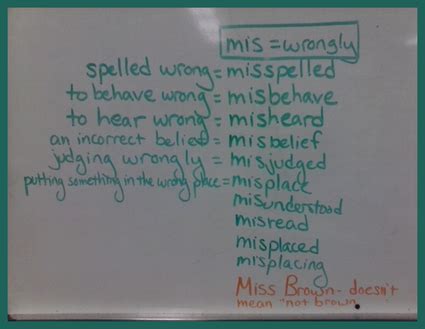 mis = wrongly
spelled wrong = misspelled
to behave wrong = misbehave
to hear wrong = misheard
an incorrect belief = misbelief
judging wrongly = misjudged
putting something in the wrong place = misplace
misunderstood
misread
misplaced
misplacing
Miss Brown - doesn't
mean "not brown